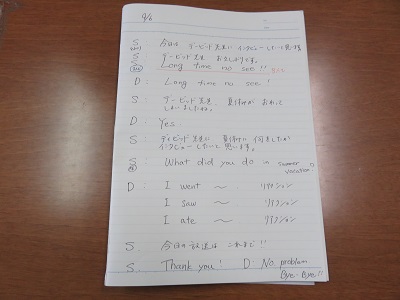 9/6
S 今日は デービッド先生に インタビューしたいと思います
デービッド先生 おひさしぶりです。
Long time no see!!
D: Long time no see!
S: デービッド先生、夏休みが おわって
しまいましたね。
D: Yes.
S: デイビッド先生に 夏休みに 何をしたか
インタビューしたいと思います。
S: What did you do in summer vacation?
D: I went 〜 リアクション
I saw 〜 リアクション
I ate 〜 リアクション
S: 今日の放送は これまで!!
S: Thank you! D: No problem
Bye-Bye!!